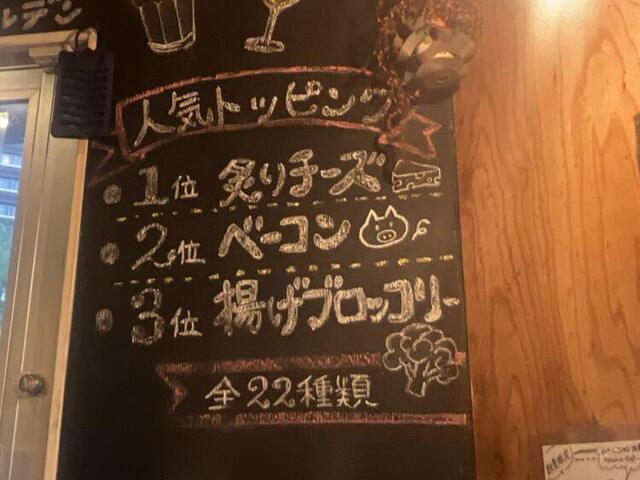 ルデン
人気トッピング
1位 炙りチーズ
2位 ベーコン
3位 揚げブロッコリー
全22種類
数量限定